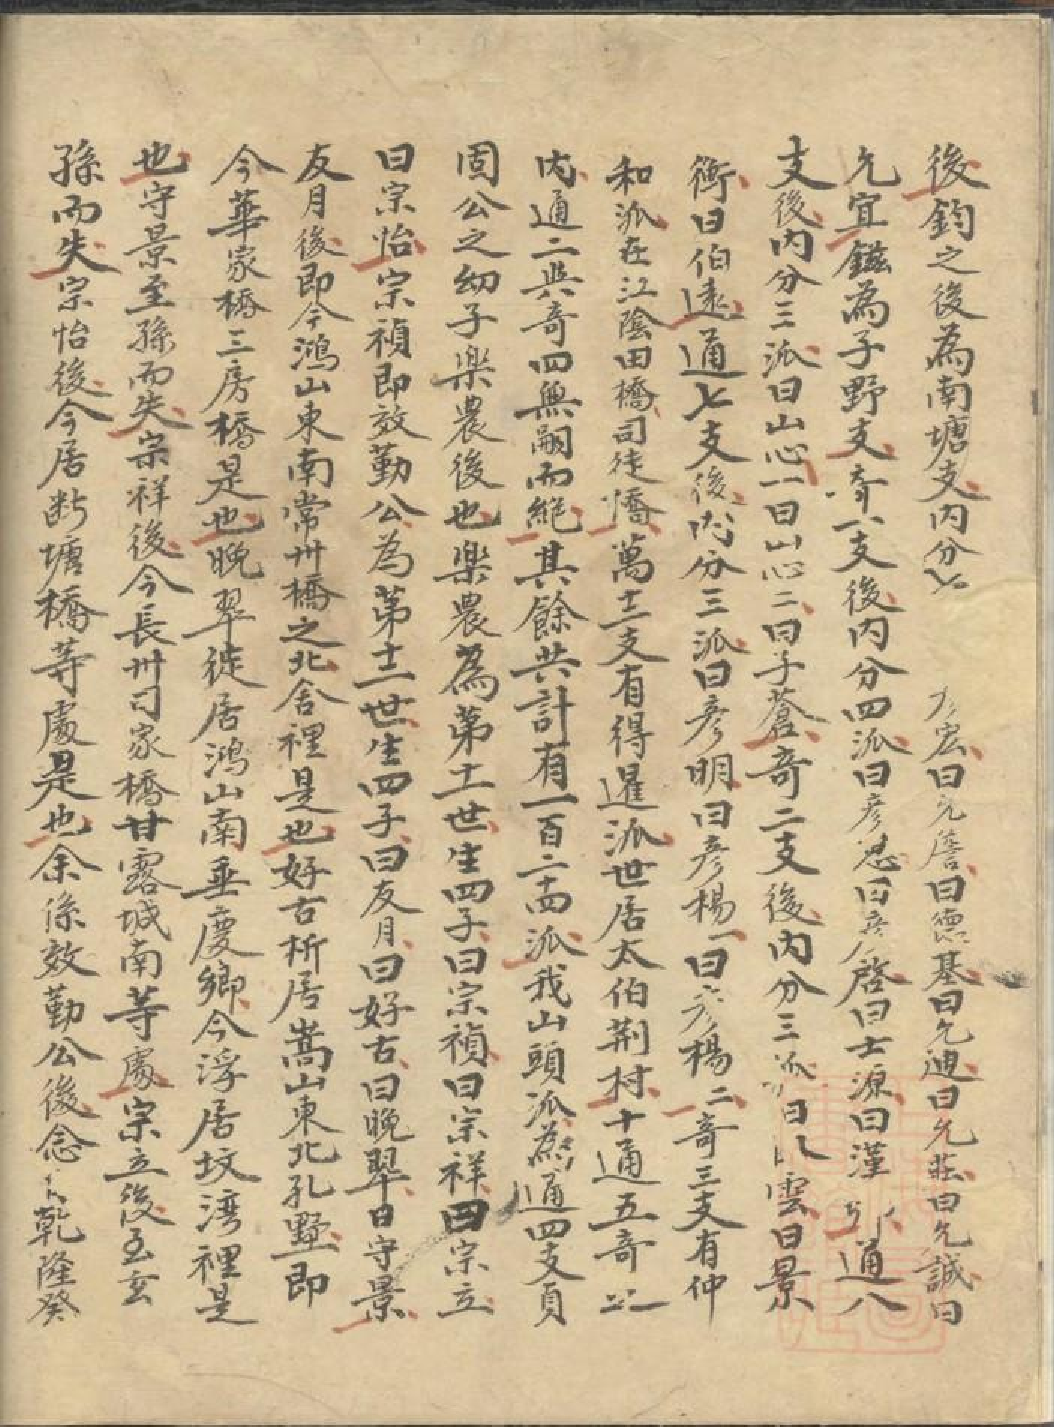 後鈞之後為南塘支内分七 宏曰允簷曰德基曰允迪曰允莊曰允誠曰
允宜鎡為子野支奇八支後内分四派曰彦忠曰彦啓曰士源曰漢 通八
支後内分三派曰山心一曰山心二曰子蒼奇二支後内分三派曰 雲曰景
衡曰伯遠通七支後内分三派曰彦明曰彦楊一曰彦楊二奇三支有仲
和派在江陰田橋司徒橋萬十二支有得暹派世居太伯荆村十通五奇
内通二與奇四無嗣而絶其餘共計有一百二十四派我山頭派為通四支貞
固公之幼子樂農後也樂農為第十一世生四子曰宗禎曰宗祥曰宗立
曰宗怡宗禎即效勤公為第十二世生四子曰友月曰好古曰晚翠曰守景
友月後即今鴻山東南常州橋之北舍裡是也好古析居嵩山東北孔墅即
今華家橋三房橋是也晚翠徙居鴻山南垂慶鄉今浮居坟湾裡是
也守景至孫而失宗祥後今長州司家橋甘露城南等處宗立後至玄
孫而失宗怡後今居断塘橋等處是也余係效勤公後念 乾隆癸